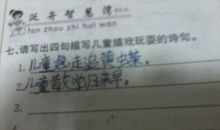 泛舟智慧湾
fan zhou zhi hui wan
七、请写出四句描写儿童嬉戏玩耍的诗句。
1.儿童急走追黄蝶。
2.儿童散学归来早。
3.